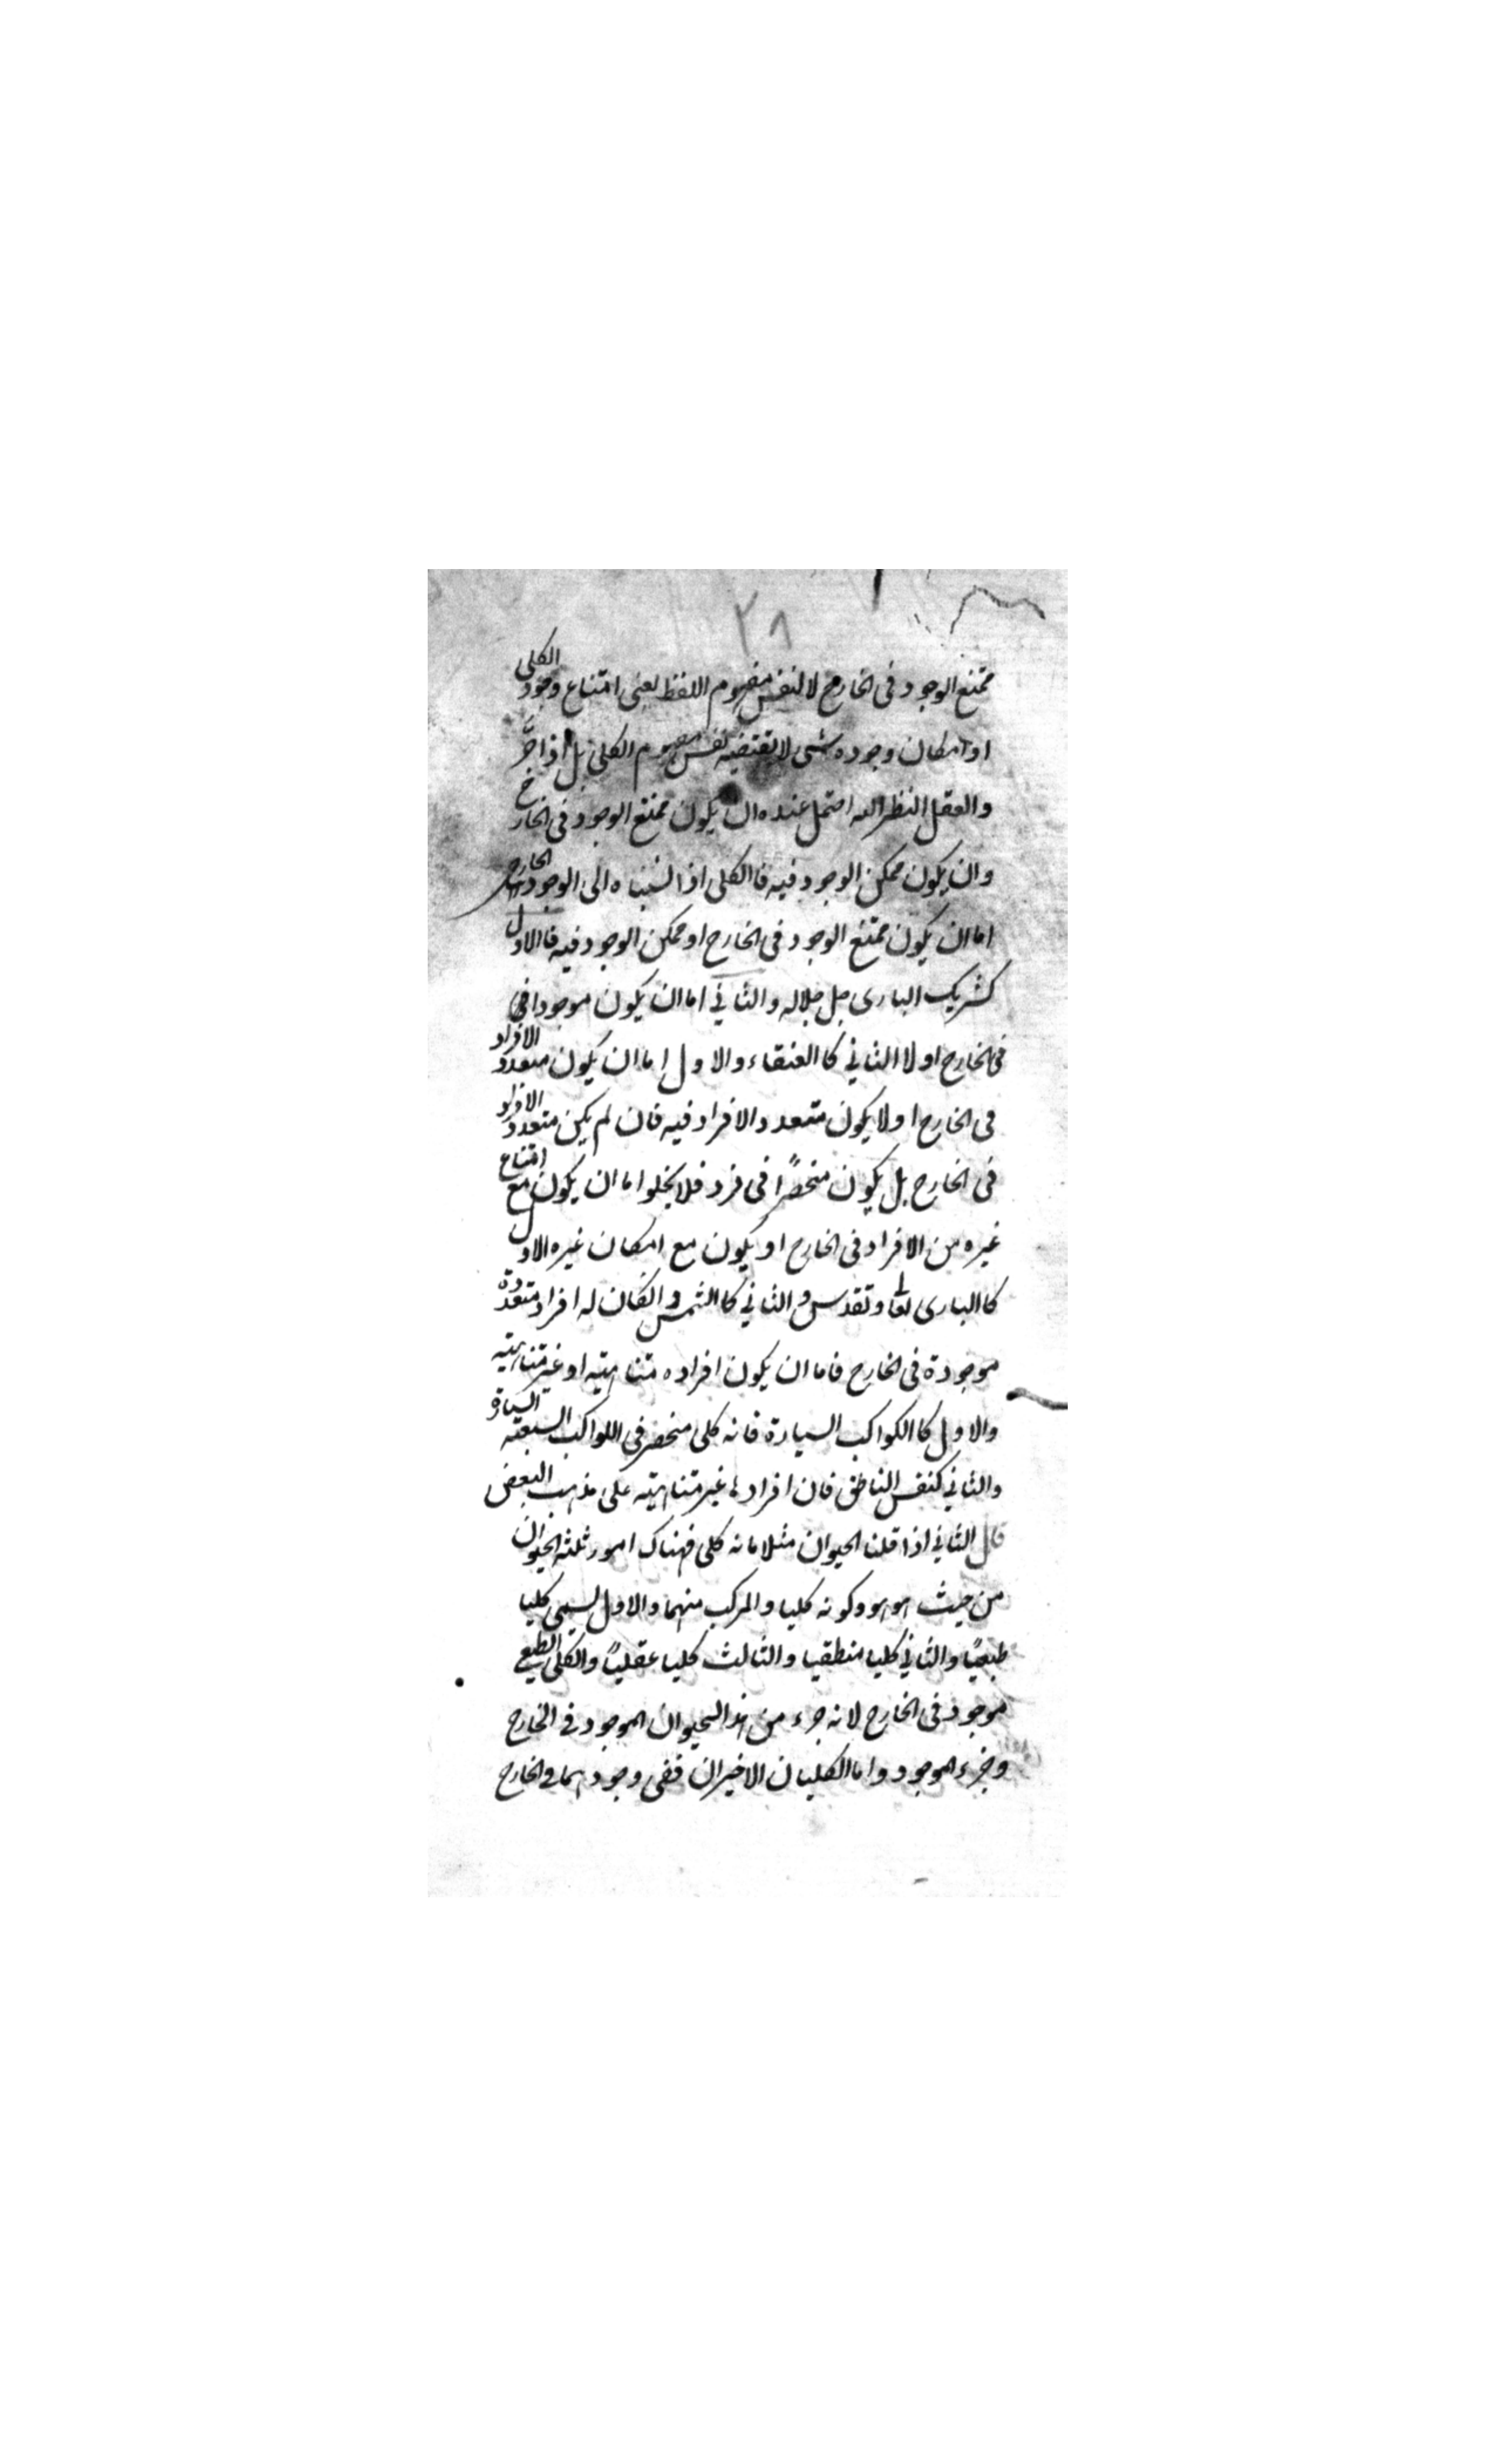 ٢٨
ممتنع الوجود فى الخارج لا لنفس مفهوم اللفظ يعنى امتناع وجود الكلى
او امكان وجوده شىء لا تقتضيه نفس مفهوم الكلى بل اذا جرّ
والعقل النظر اليه احتمل عنده ان يكون ممتنع الوجود فى الخارج
وان يكون ممكن الوجود فيه فالكلى اذا نسبناه الى الوجود الخارجى
اما ان يكون ممتنع الوجود فى الخارج او ممكن الوجود فيه فالاول
كشريك البارى جل جلاله والثانى اما ان يكون موجودا فى
فى الخارج او لا الثانى كالعنقاء والاول اما ان يكون متعدد الافراد
فى الخارج او لا يكون متعدد الافراد فيه فان لم يكن متعدد الافراد
فى الخارج بل يكون منحصرًا فى فرد فلا يخلوا اما ان يكون مع امتناع
غيره من الافراد فى الخارج او يكون مع امكان غيره الاول
كالبارى تعالى وتقدس والثانى كالشمس وان كان له افراد متعددة
موجودة فى الخارج فاما ان يكون افراده متناهيته او غير متناهيته
والاول كالكواكب السيارة فانه كلى منحصر فى الكواكب السبعة السيارة
والثانى كنفس الناطق فان افرادها غير متناهيته على مذهب البعض
قال الثانى اذا قلنا الحيوان مثلا مانه كلى فهناك امور ثلثه الحيوان
من حيث هو هو وكونه كليا والمركب منهما والاول يسمى كليا
طبعيًا والثانى كليا منطقيا والثالث كليا عقليًا والكلى الطبيعى
موجود فى الخارج لانه جزء من هذا الحيوان الموجود فى الخارج
وجزء الموجود واما الكليان الاخيران ففى وجودهما فى الخارج